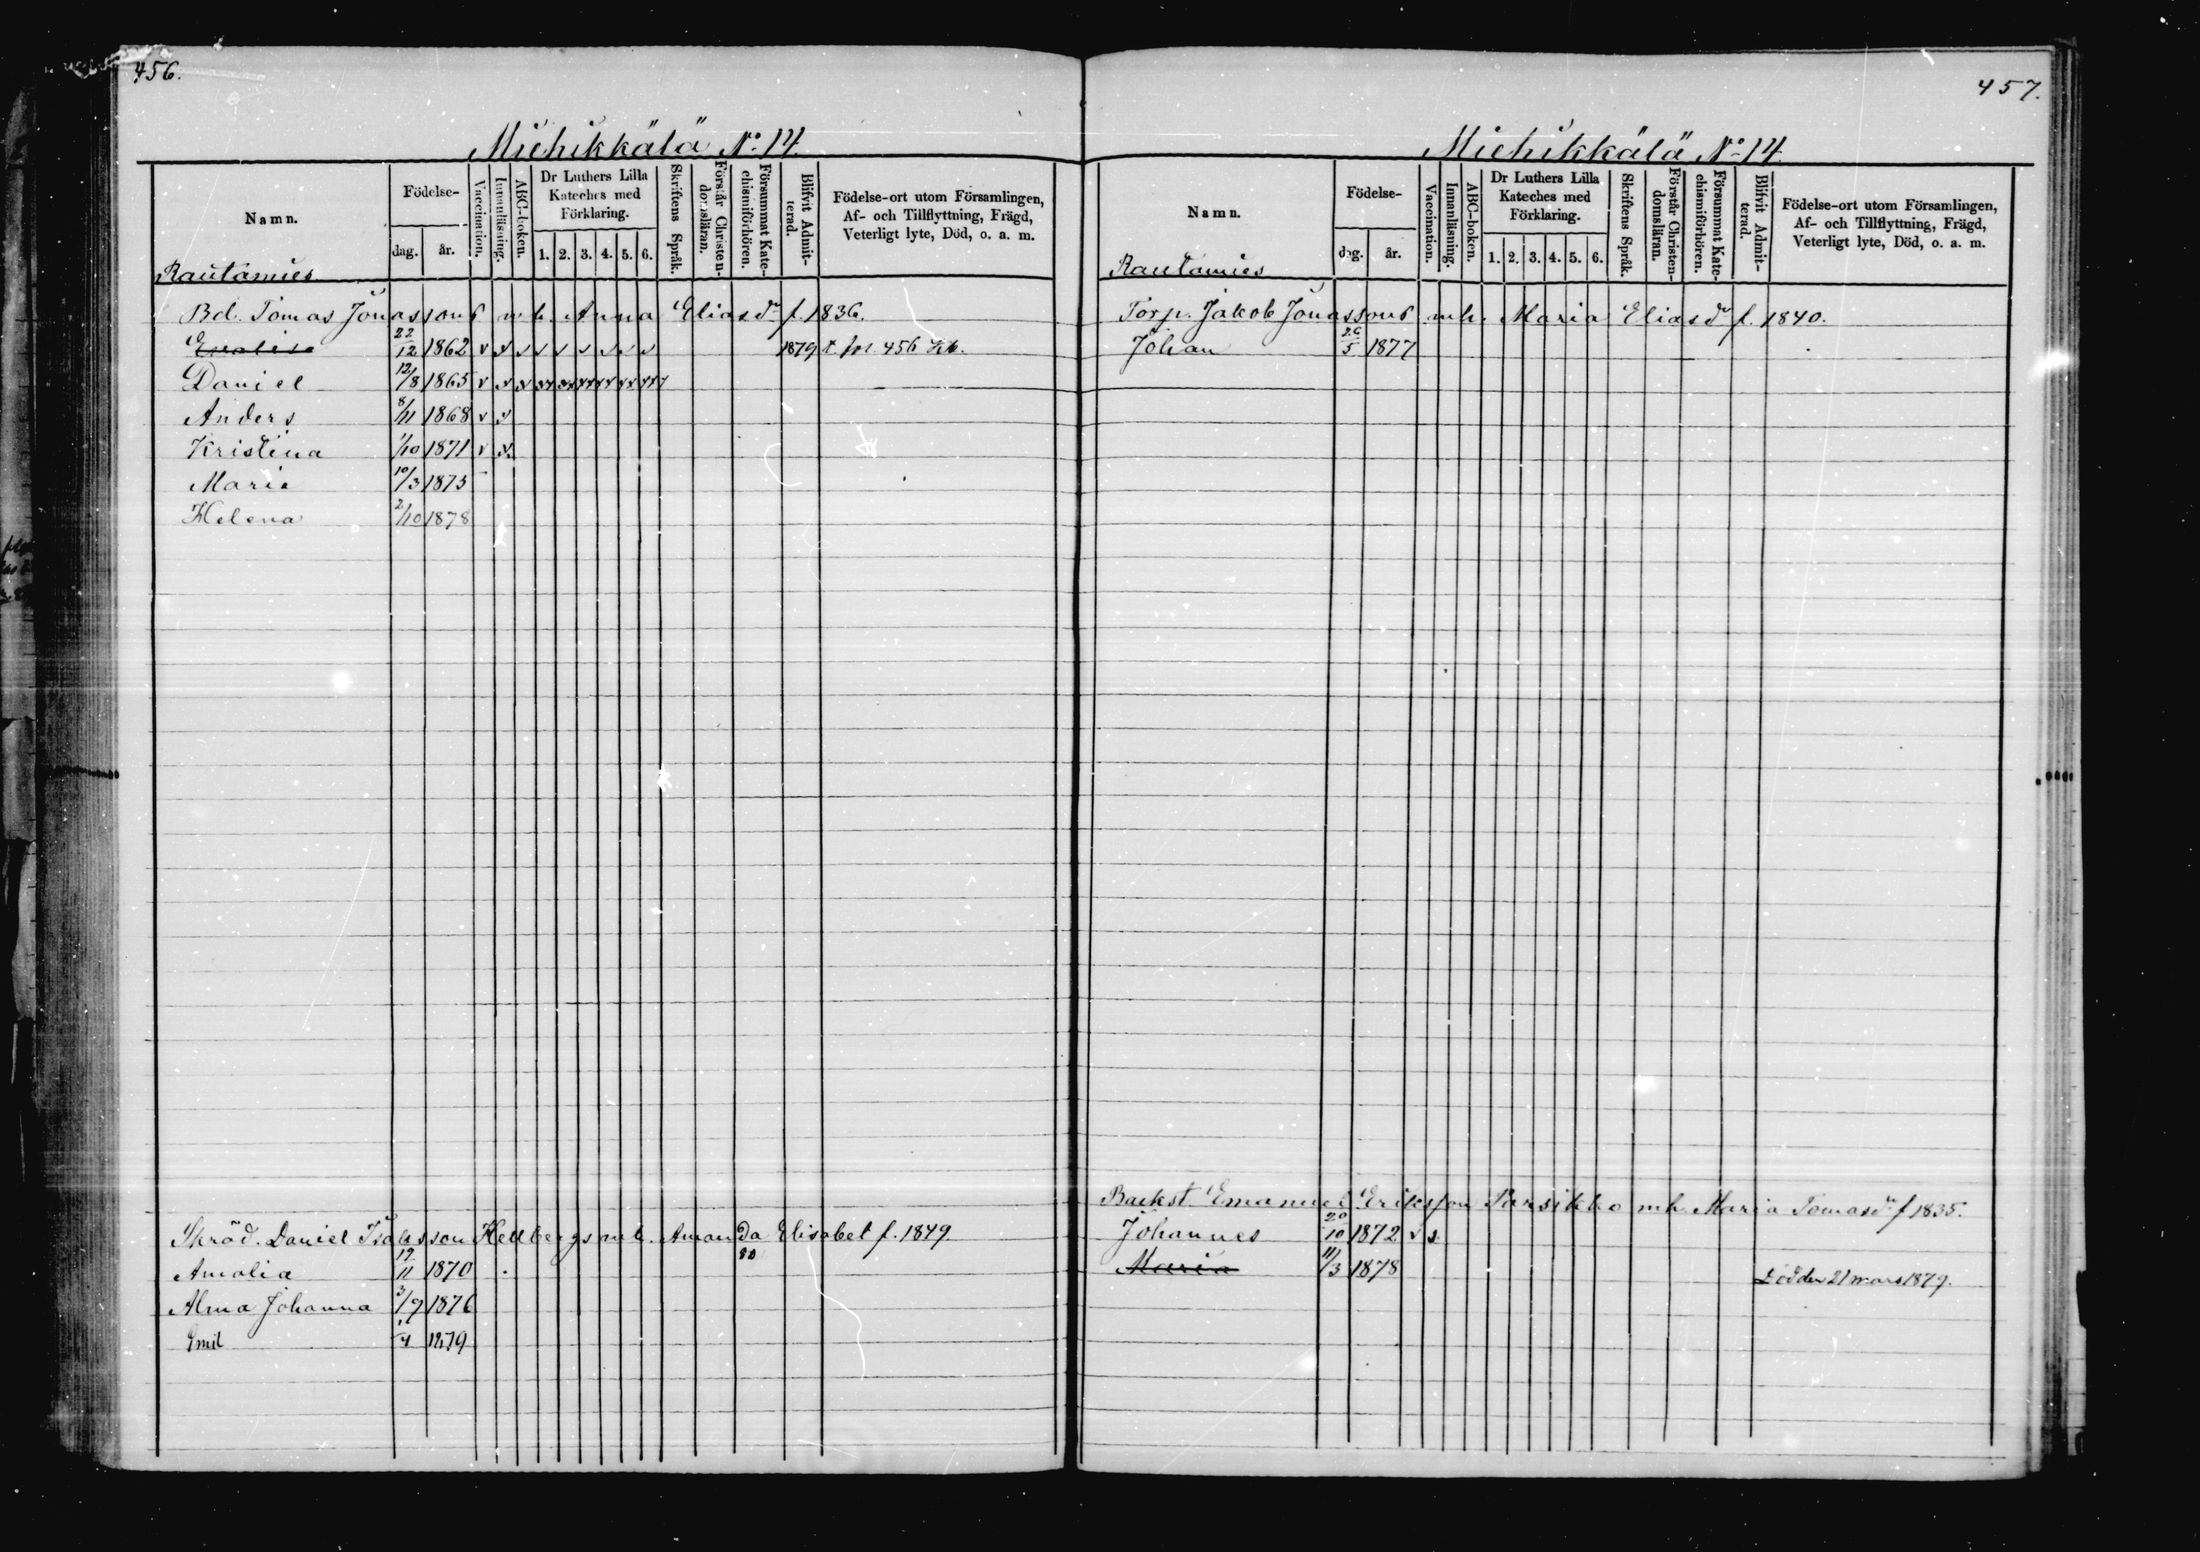 456.
Miehikkälä No 14.
Namn.
Födelse-
dag.
år.
Vaccination.
Innanläsning.
ABC-boken.
Dr Luthers Lilla
Kateches med
Förklaring.
1. 2. 3. 4. 5. 6.
Skriftens Språk.
Förstår Christen-
domsläran.
Försummat Kate-
chismiförhören.
Blifvit Admit-
terad.
Födelse-ort utom Församlingen,
Af- och Tillflyttning, Frägd,
Veterligt lyte, Död, o. a. m.
Rautamies
Bd. Tomas Jonassons m. h. Anna Eliasdr f. 1836.
Evalisa 22/12 1862 v v v v v v v v v 1879 t. pr. 456
Daniel 12/8 1865
Anders 8/11 1868 v v
Kristina 1/10 1871 v v.
Maria 10/3 1875
Helena 2/10 1878
Skräd. Daniel Isaksson Hellbergs m. h. Amanda Elisabet f. 1849
80
Amalia 12/11 1870
Alma Johanna 3/9 1876
Emil 1879
457.
Miehikkälä No 14.
Namn.
Födelse-
dag.
år.
Vaccination.
Innanläsning.
ABC-boken.
Dr Luthers Lilla
Kateches med
Förklaring.
1. 2. 3. 4. 5. 6.
Skriftens Språk.
Förstår Christen-
domsläran.
Försummat Kate-
chismiförhören.
Blifvit Admit-
terad.
Födelse-ort utom Församlingen,
Af- och Tillflyttning, Frägd,
Veterligt lyte, Död, o. a. m.
Rautamies
Torp. Jakob Jonassons m. h. Maria Eliasdr f. 1840.
Johan 26/5 1877
Backst. Emanuel Eriksson Parsikko m. h. Maria Tomasdr f 1835.
Johannes 20/10 1872 v s
Maria 11/3 1878 Död den 21 mars 1879.